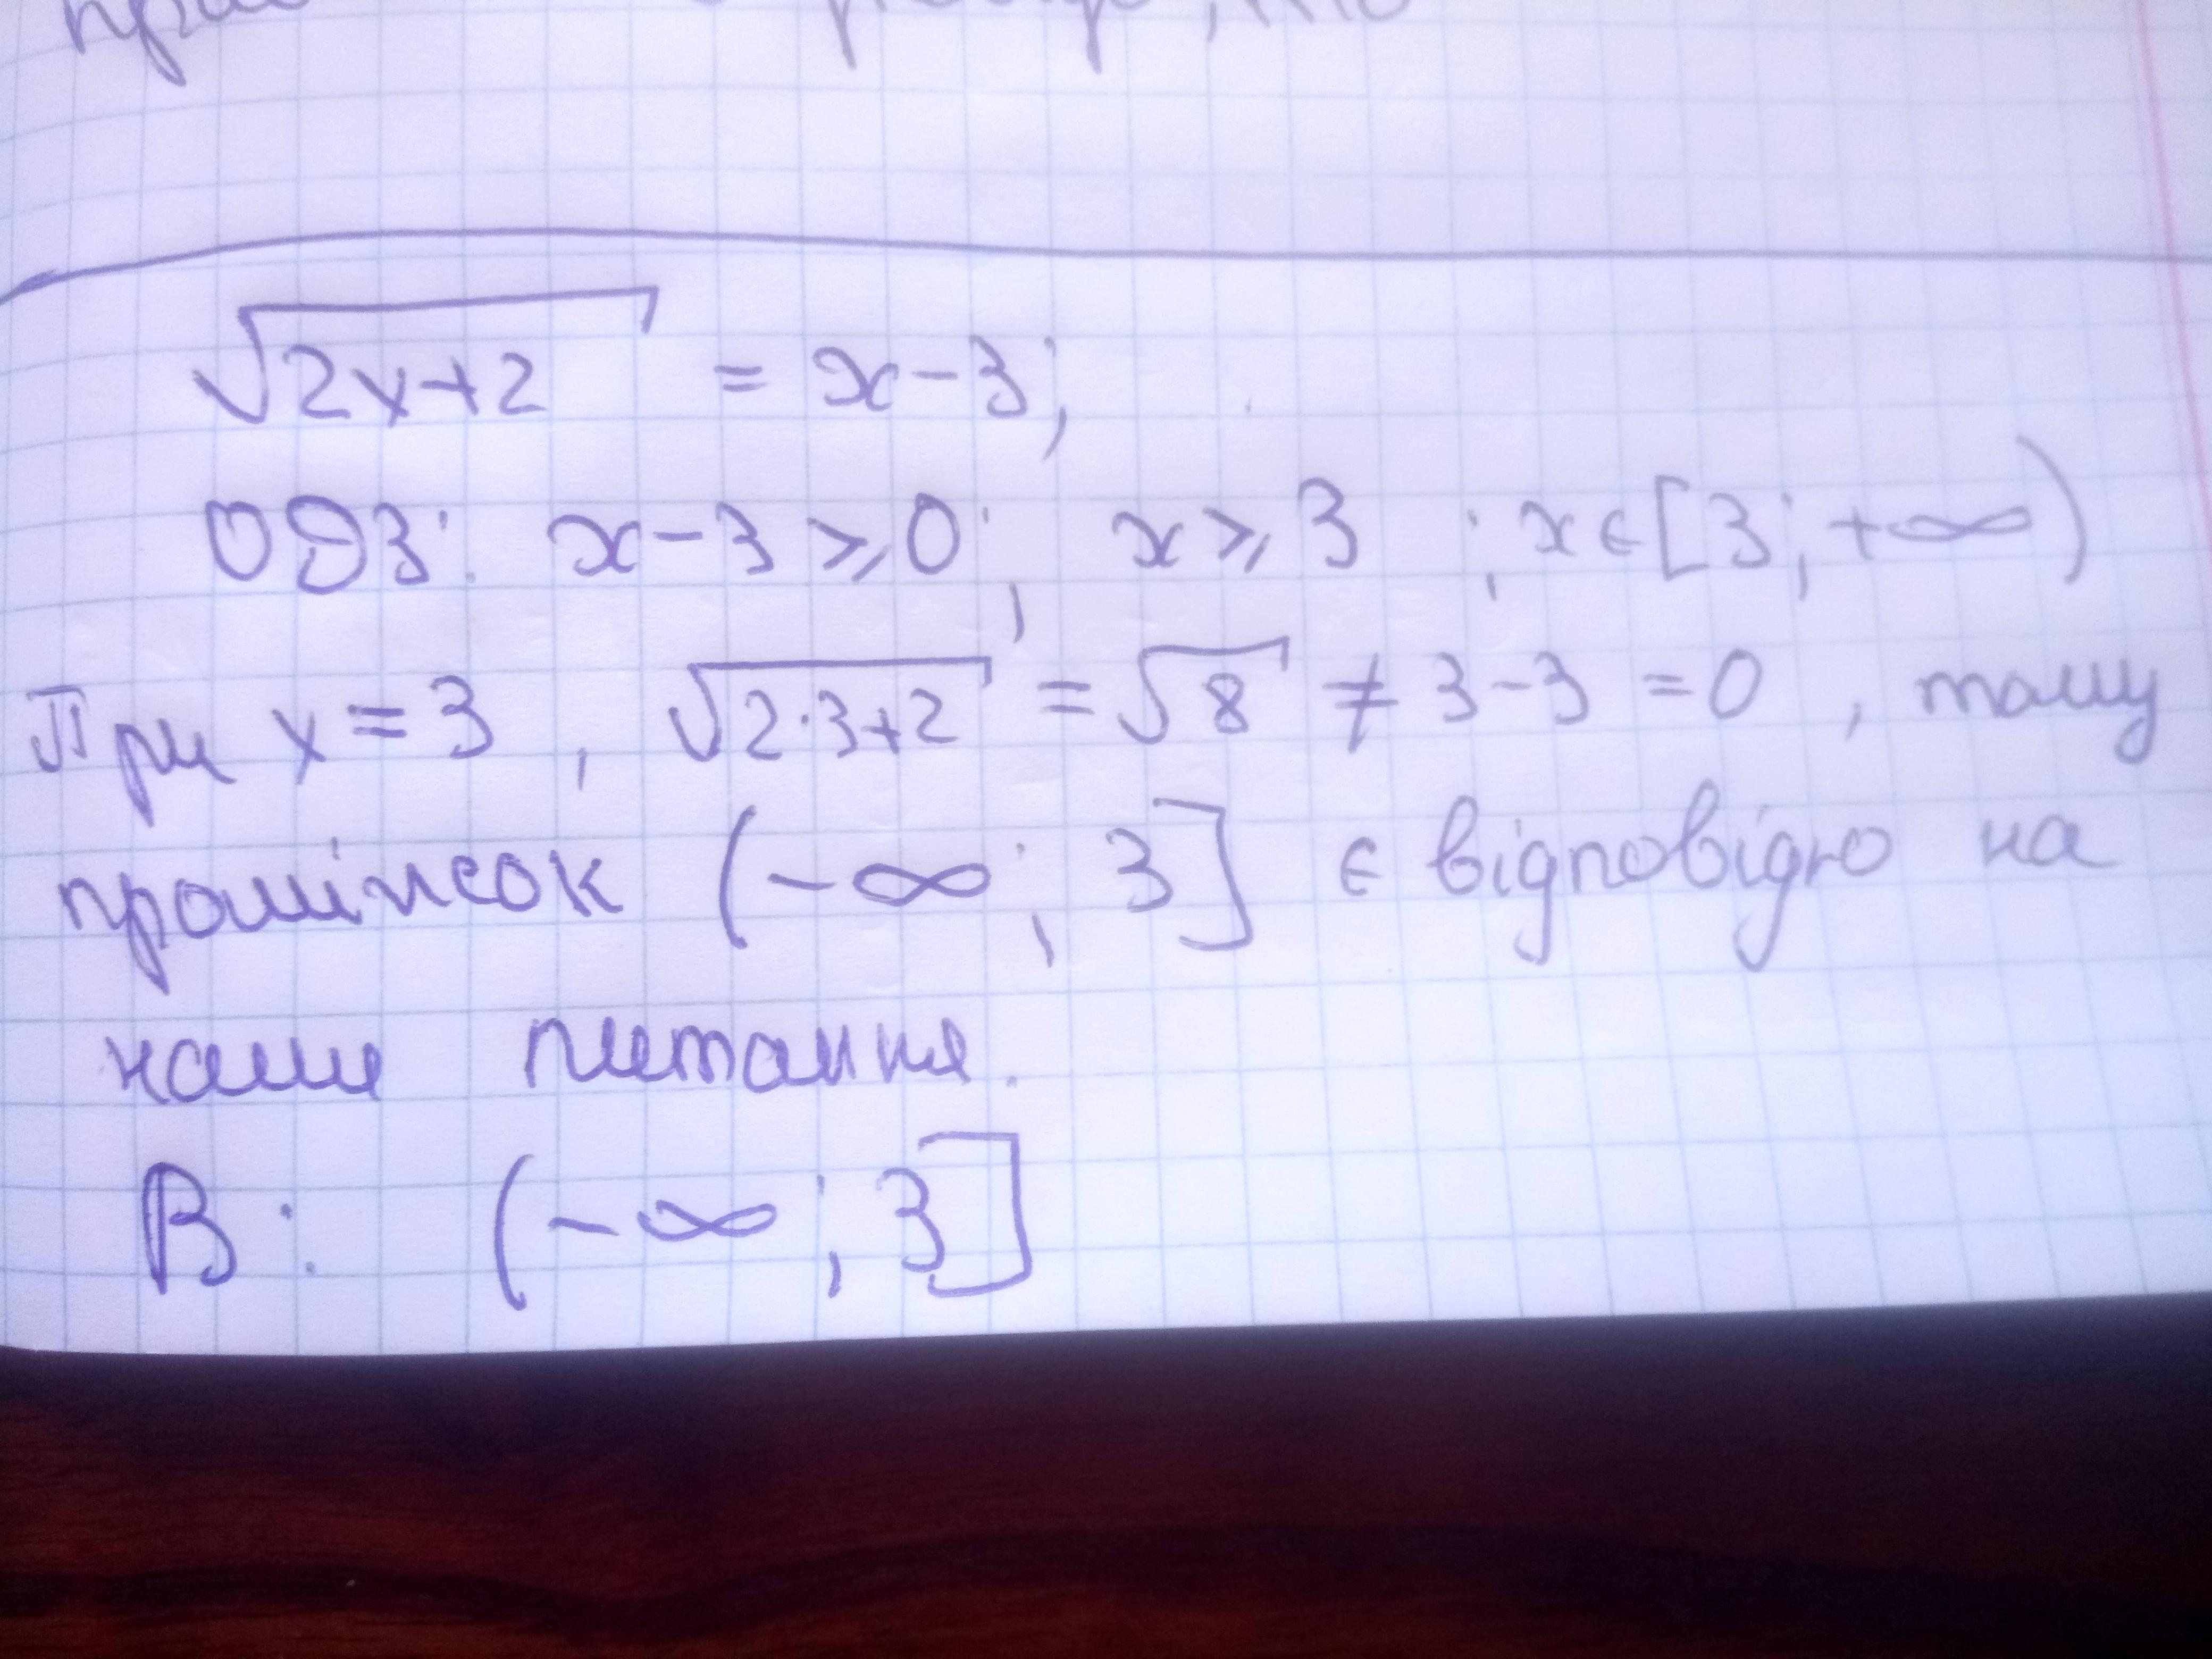 √2x+2 = x-3;
ОДЗ: x-3 ⩾ 0; x ⩾ 3 ; x ∈ [3; +∞)
При x = 3 , √2·3+2 = √8 ≠ 3-3 = 0 , тому
проміжок (-∞; 3] є відповідю на
наше питання.
В: (-∞; 3]